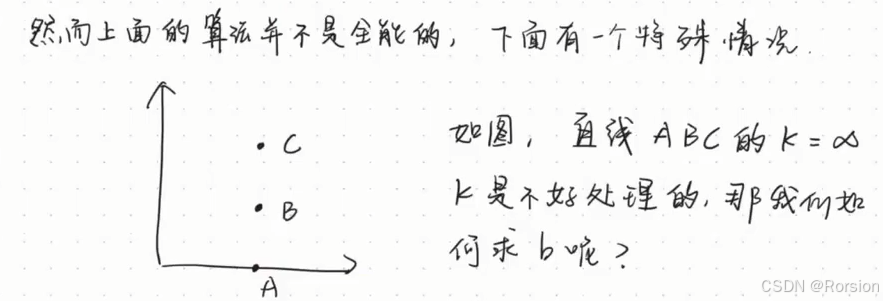 然而上面的算法并不是全能的，下面有一个特殊情况.
C
B
A
如图，直线ABC的k=∞
k是不好处理的，那我们如
何求b呢？
CSDN @Rorsion